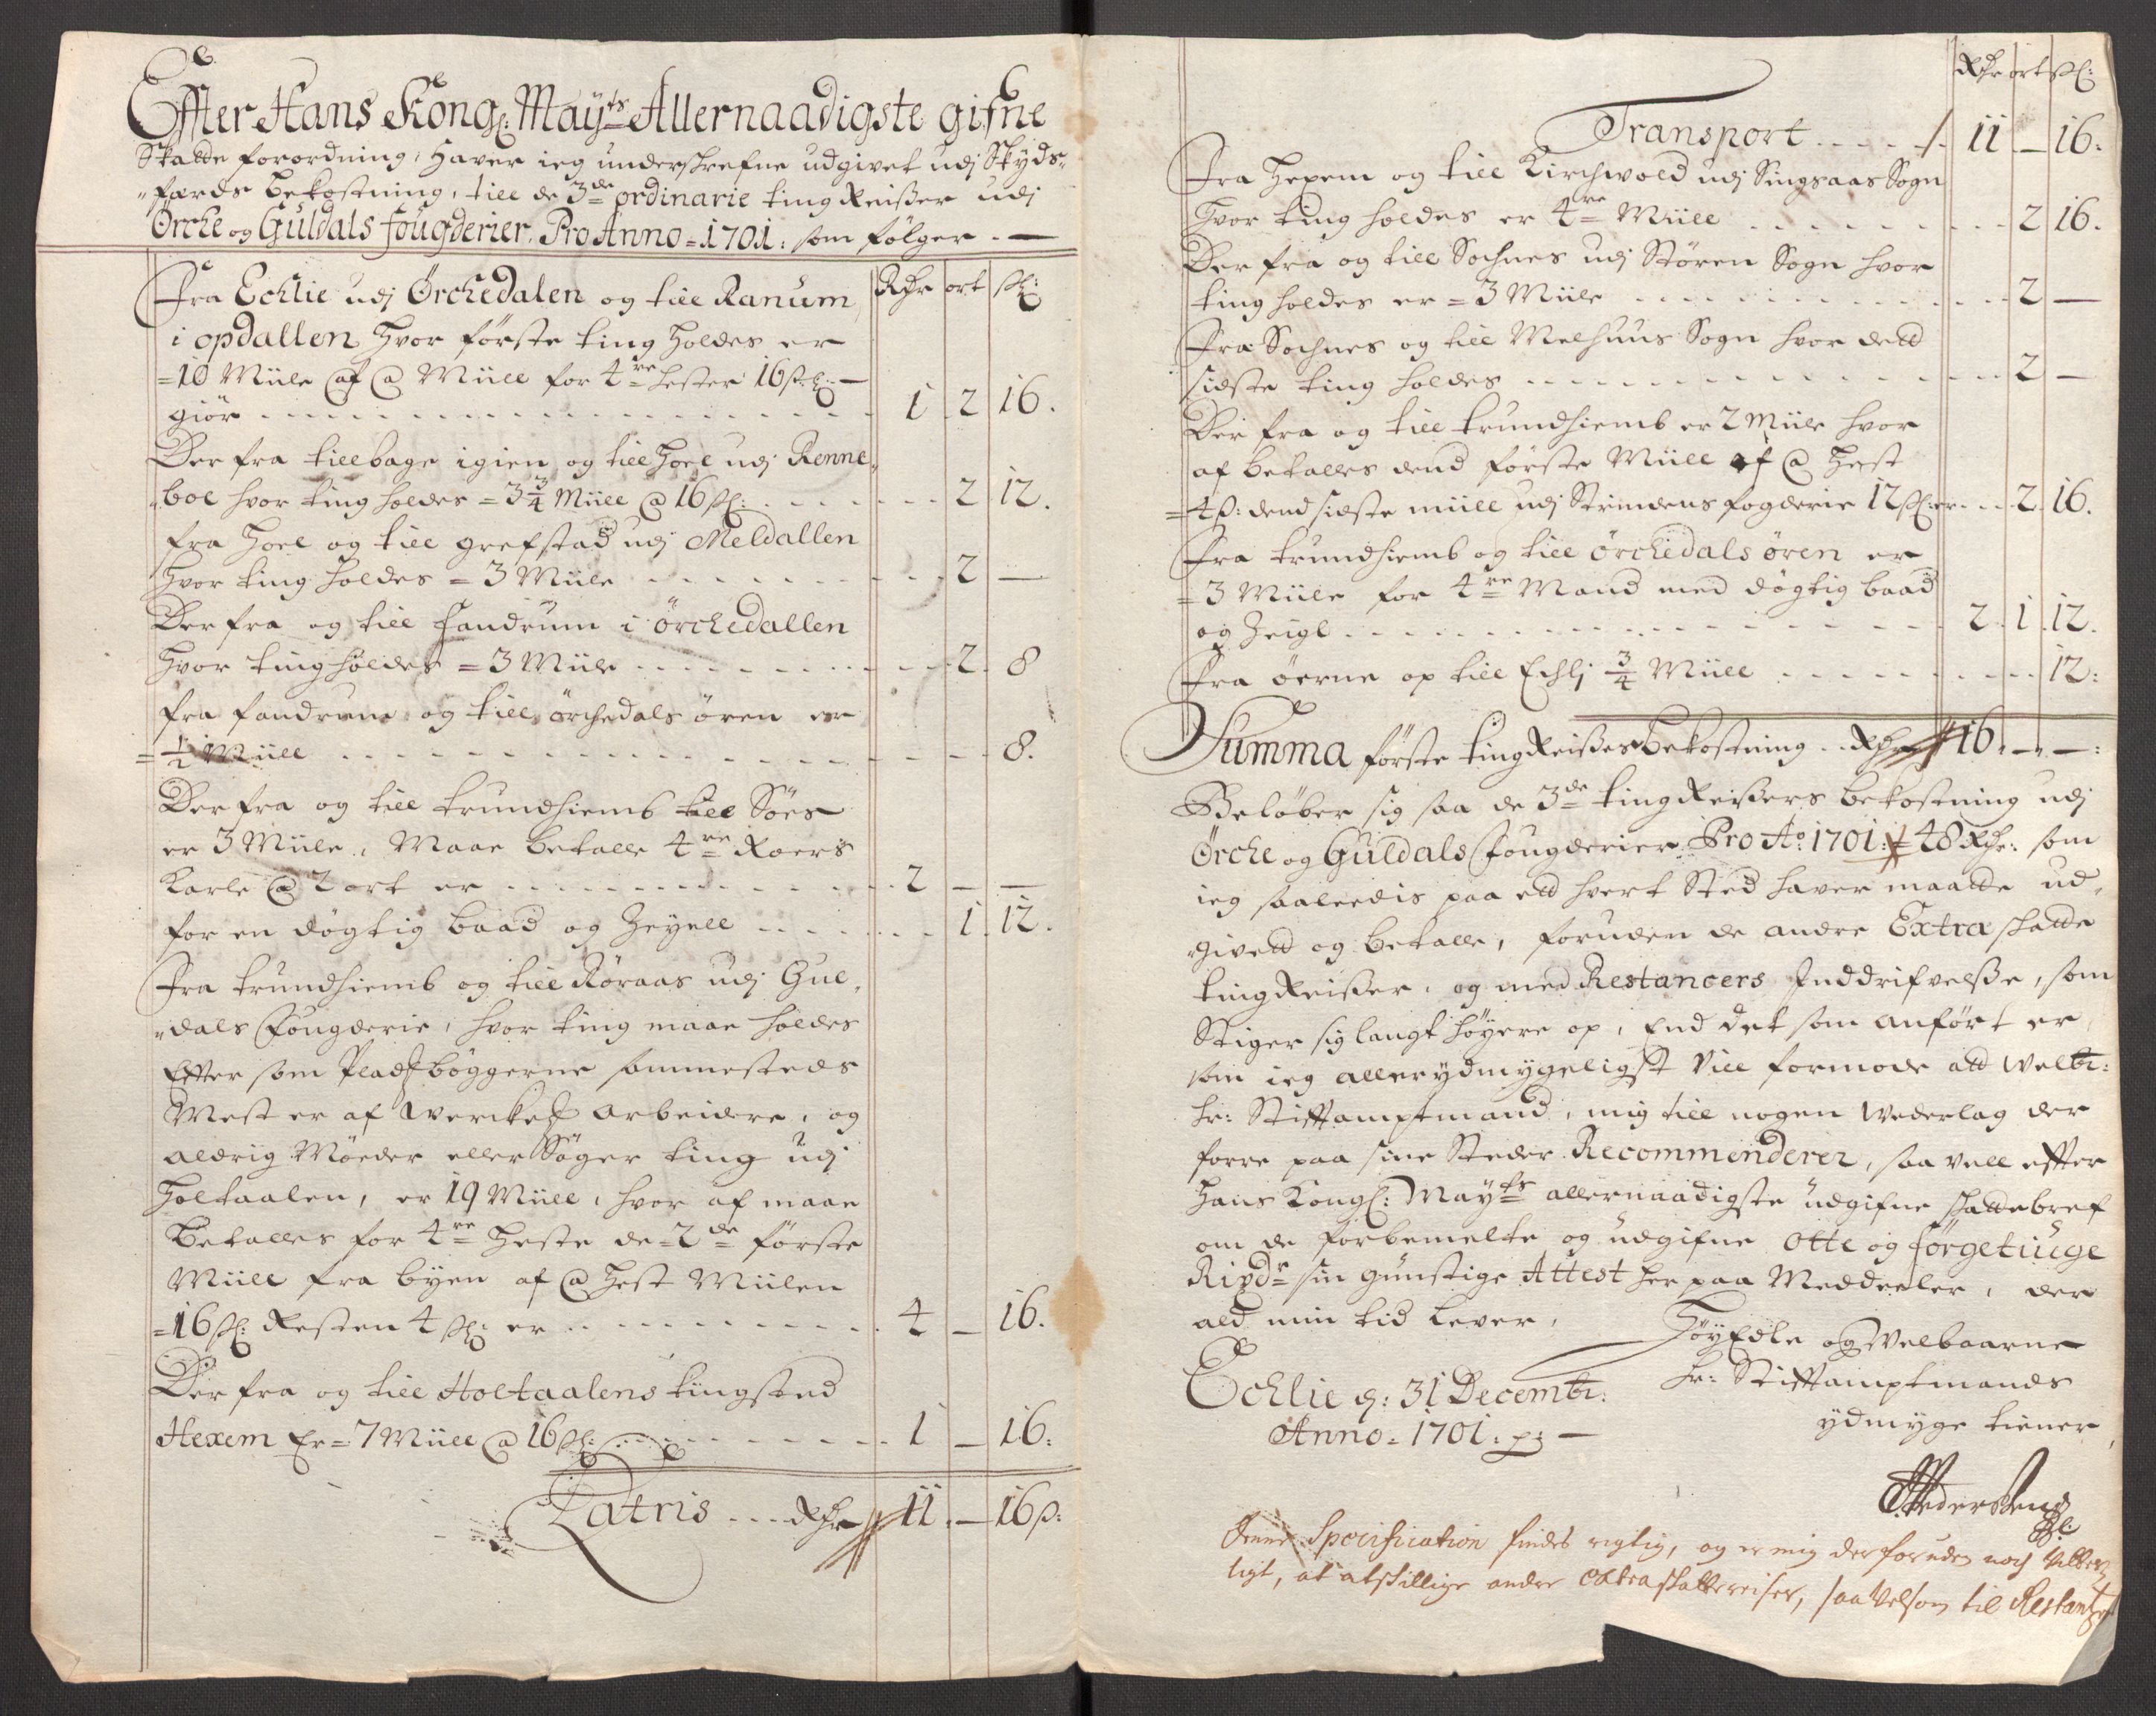 Effter Hans Kong: Mayts Allernaadigste gifne
Skatte forordning, Haver ieg underschrefne udgivet udj Skyds-
færds bekostning, till de 3de ordinarie ting Reißer udj
Ørche og Guldals fougderier. Pro Anno = 1701: som følger. —
Rdr ort sk:
Fra Echlie udj Ørchedalen og till Ranum
i opdallen Hvor første ting holdes er
= 10 Miile af @ Miill for 4re hester 16 sk: —
giør 1 2 16.
Der fra tillbage igien og till Hoel udj Renne-
boe hvor ting holdes = 3 3/4 Miill @ 16 sk: 2 12.
fra Hoel og till grefstad udj Meldallen
Hvor ting holdes = 3 Miile 2 —
Der fra og till fandrum i ørchedallen
Hvor ting holdes = 3 Miile 2. 8
fra fandrum og till ørchedals øren er
= 1/2 Miill 8.
Der fra og till trundhiemb till Søes
er 3 Miile, Maae betalle 4re Roers
Karle @ 2 ort er 2 — —
for en døgtig baad og Zeyell 1. 12.
Fra trundhiemb og till Røraas udj Gul-
dals fougderie, hvor ting maae holdes
Effter som Pladsbøggerne sammesteds
Mest er af werckes arbeidere, og
aldrig Møeder eller Søger ting udj
Holtaalen, er 19 Miill, hvor af maae
betalles for 4re Heste de = 2de første
Miill fra byen af @ Hest Miilen
= 16 sk: Resten 4 sk: er 4 — 16.
Der fra og till Holtaalens tingsted
Hexem Er = 7 Miill @ 16 sk: 1 — 16:
Latris Rdr 11. — 16 s:
Rdr ort sk:
Transport 11 — 16.
Fra Hexem og till Kirchwold udj Singsaas Sogn
Hvor ting holdes er 4re Miill 2 16.
Der fra og till Sochnes udj Støren Sogn hvor
ting holdes er = 3 Miile 2 —
Fra Sochnes og till Melhuus Sogn hvor dett
sidste ting holdes 2 —
Der fra og till trundhiemb er 2 Miile hvor
af betalles dend første Miill af @ Hest
= 4 s: dend sidste miill udj Strindens fogderie 12 sk: er 2. 16.
Fra trundhiemb og till ørchedals øren er
= 3 Miile for 4re Mand med døgtig baad
og Zeigl 2. 1. 12.
Fra øerne op till Echlj 3/4 Miill 12:
Summa første ting Reißes bekostning Rdr 16. —. —:
Beløber sig saa de 3de ting Reißers bekostning udj
Ørche og Guldals fougderier Pro Ao: 1701: 48 Rdr: som
ieg saaledis paa ett hvert Sted haver maatte ud-
givett og betalle, foruden de andre Extra skatte
ting Reißer, og med Restancers Inddrifvelße, som
Stiger sig langt høyere op, End det som anført er
som ieg allerydmygeligst Vill formode att Welb:
hr: Stifftamptmand, mig till nogen Wederlag der
forre paa sine Steder Recommenderer, saa vell effter
Hans Kongl: Mayts allernaadigste udgifne skattebref
om de forbemelte og udgifne otte ogførgetiuge
Rixdr sin gunstige Attest her paa Meddeeler, der
ald min tid lever,
Høy Edle og Velbaarne
Hr: Stifftamptmands
ydmyge tiener
Echlie d: 31 Decembr:
Anno = 1701: —
Denne Specification findes rigtig, og er mig desforuden noch Vitter-
ligt, at atskillige andre extra skatte reiser, saa velsom til Restantzers